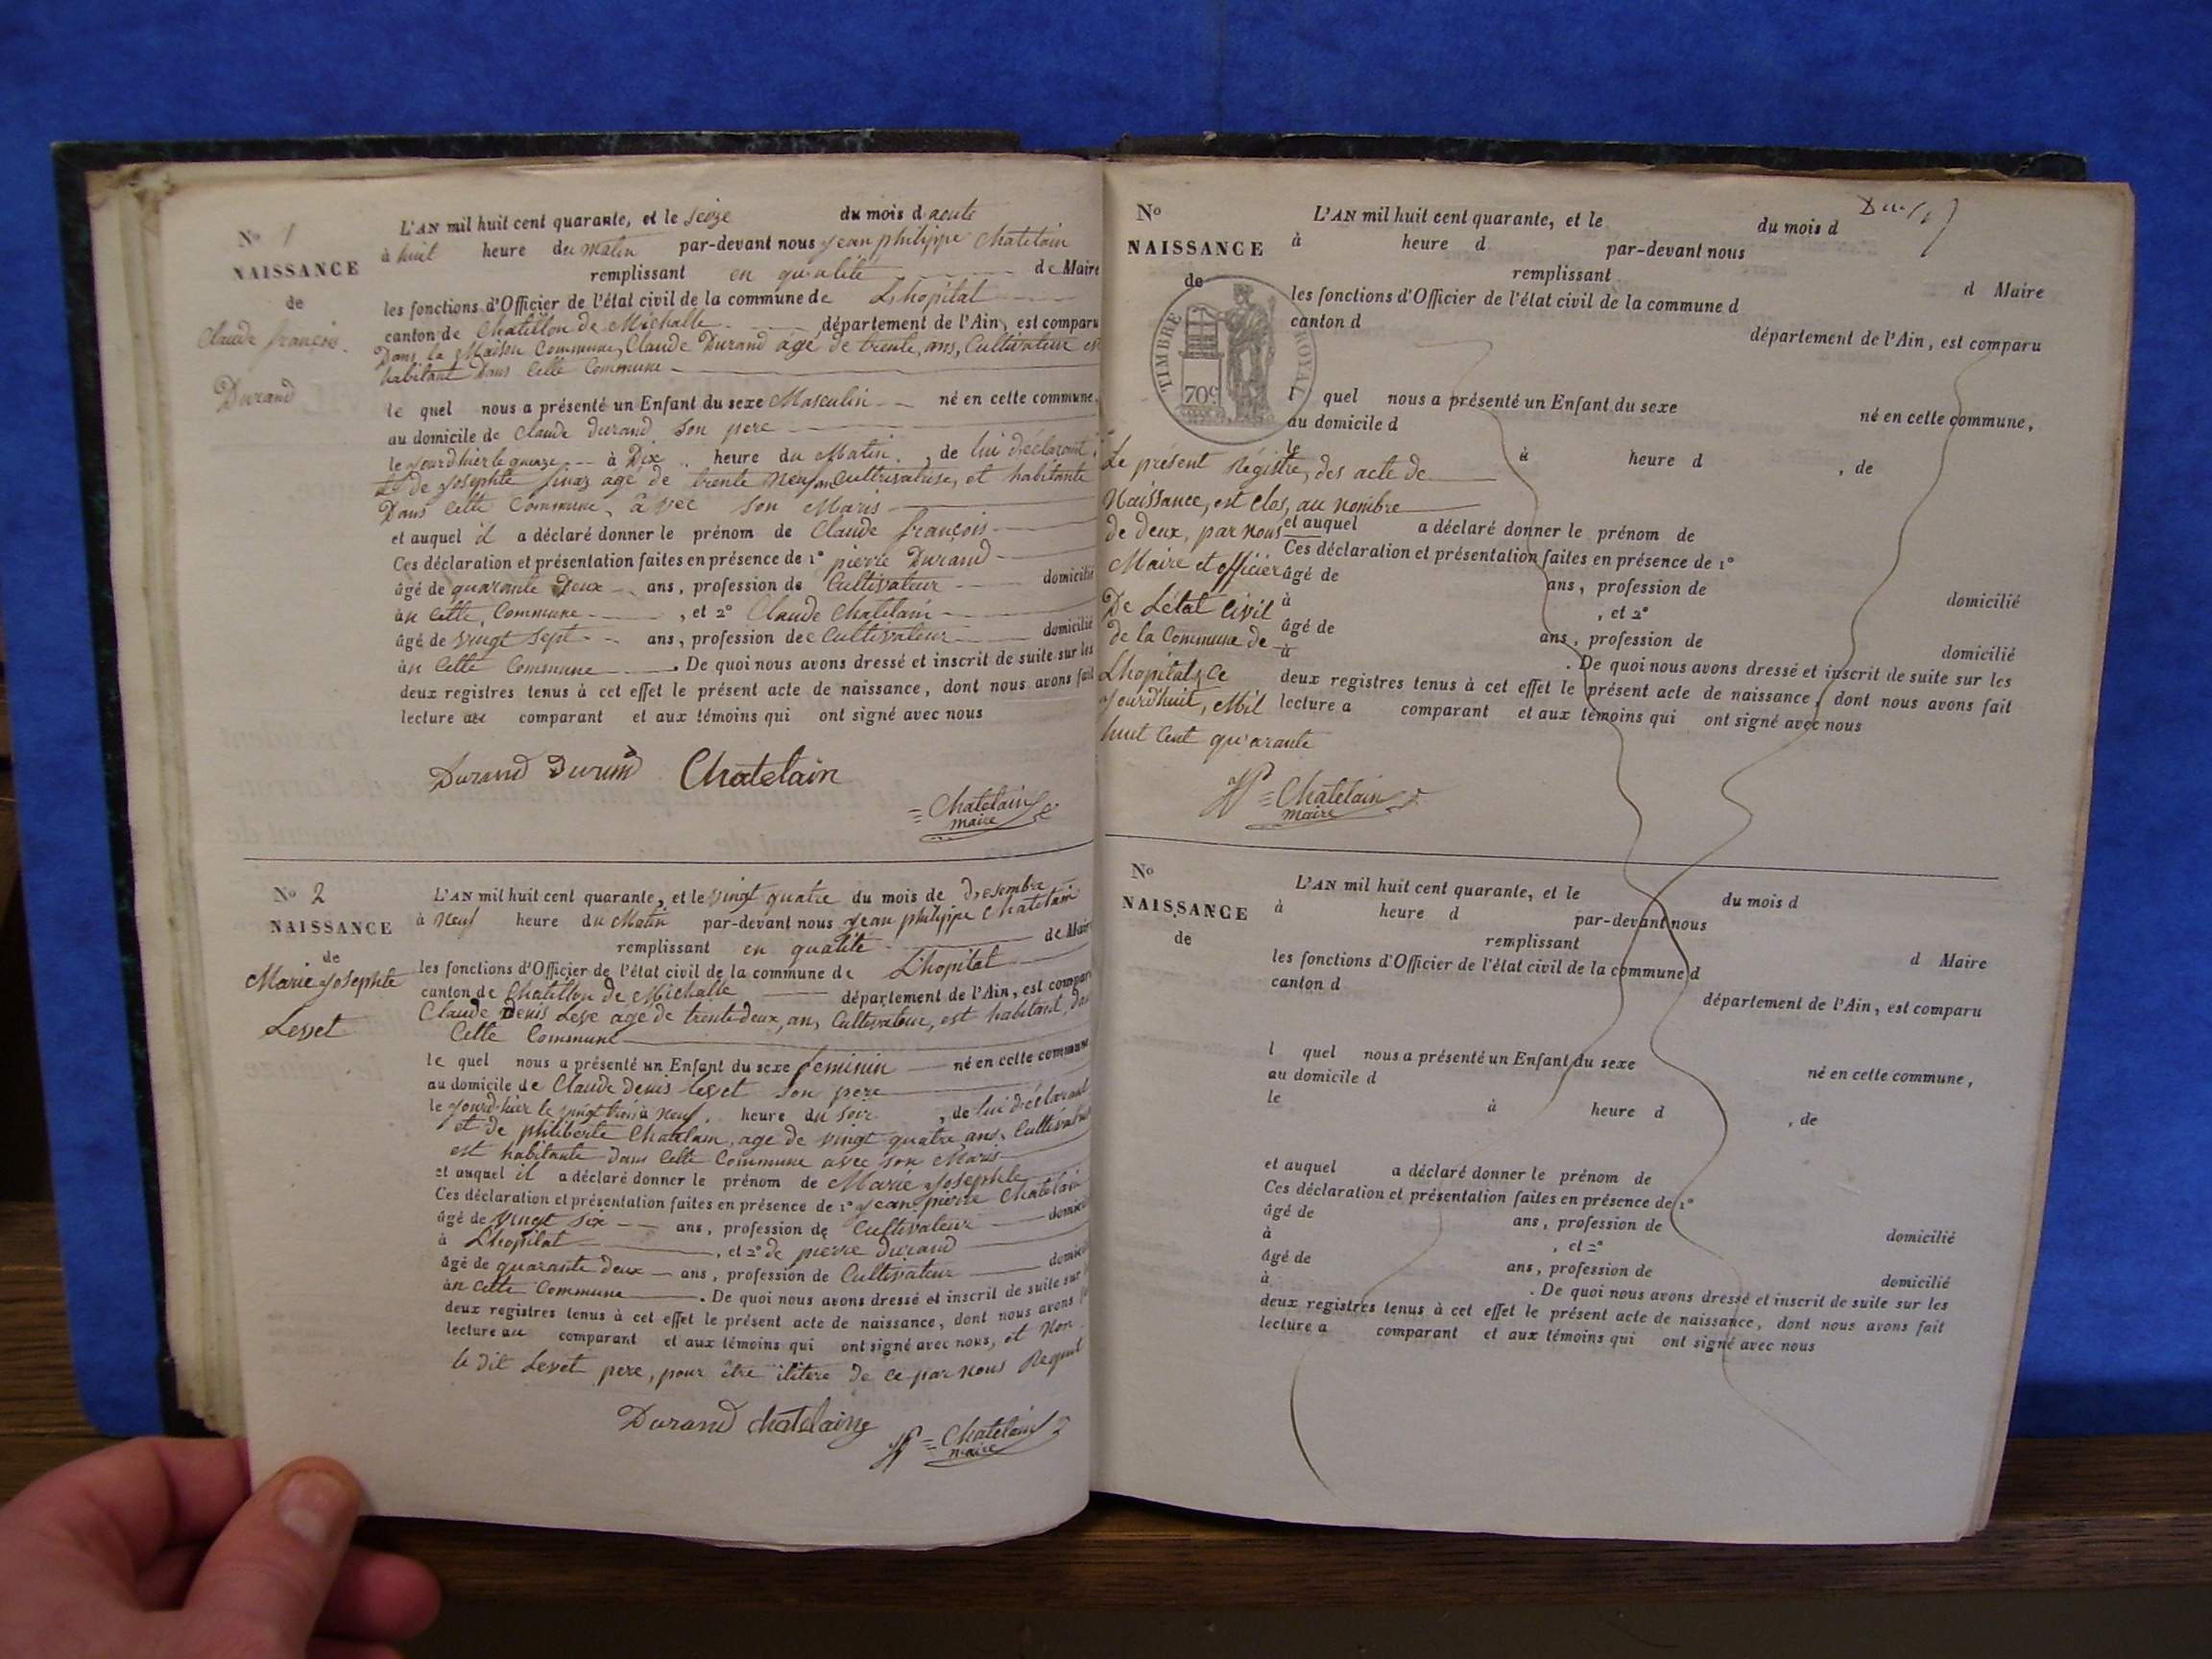 N° 1
NAISSANCE
de
Claude françois
Durand
L'AN mil huit cent quarante, et le seize du mois d'aoute
à huit heure du matin par-devant nous jean philippe Chatelain
remplissant en qualité de Maire
les fonctions d'Officier de l'état civil de la commune de Lhopital
canton de Chatillon de Michalle département de l'Ain, est comparu
Dans la Maison Commune, Claude Durand âgé de trente, ans, Cultivateur est
habitant Dans Cette Commune
le quel nous a présenté un Enfant du sexe Masculin né en cette commune,
au domicile de Claude durand son pere
le jourdhier le quinze à Dix heure du Matin, de lui déclarant
et de josephte age de trente neuf an Cultivatrise, et habitante
Dans Cette Commune, avec son Maris
et auquel il a déclaré donner le prénom de Claude françois
Ces déclaration et présentation faites en présence de 1° pierre Durand
âgé de quarante Deux ans, profession de Cultivateur domicilié
àn cette, Commune, et 2° Claude Chatelain
âgé de vingt sept ans, profession dee Cultivateur domicilié
àn Cette Commune. De quoi nous avons dressé et inscrit de suite sur les
deux registres tenus à cet effet le présent acte de naissance, dont nous avons fait
lecture au comparant et aux témoins qui ont signé avec nous
Durand Durand Chatelain
Chatelain
maire
N° 2
NAISSANCE
de
Marie josephte
Levet
L'AN mil huit cent quarante, et le vingt quatre du mois de Desembre
à neuf heure du Matin par-devant nous jean philippe Chatelain
remplissant en qualité de Maire
les fonctions d'Officier de l'état civil de la commune de Lhopital
canton de Chatillon de Michalle département de l'Ain, est comparu
Claude Denis Leve age de trente deux, an, Cultivateur, est habitant, dans
Cette Commune
le quel nous a présenté un Enfant du sexe feminin né en cette commune
au domicile de Claude denis levet son pere
le jourd-hier le vingt trois à neuf heure du soir, de lui déclarant
et de philiberte Chatelain, age de vingt quatre ans, Cultivatrise
est habitante dans Cette Commune avec son Maris
et auquel il a déclaré donner le prénom de Marie josephte
Ces déclaration et présentation faites en présence de 1° jean pierre Chatelain
âgé de vingt six ans, profession de Cultivateur domicilié
à Lhopital, et 2° de pierre durand
âgé de quarante deux ans, profession de Cultivateur domicilié
àn cette Commune. De quoi nous avons dressé et inscrit de suite sur
deux registres tenus à cet effet le présent acte de naissance, dont nous avons
lecture au comparant et aux témoins qui ont signé avec nous, et non
le dit Levet pere, pour être ilitere de ce par nous Requit
Durand Chatelain
JP Chatelain
maire
N°
NAISSANCE
de
TIMBRE ROYAL
70c
L'AN mil huit cent quarante, et le du mois d
à heure d par-devant nous
remplissant d Maire
les fonctions d'Officier de l'état civil de la commune d
canton d département de l'Ain, est comparu
l quel nous a présenté un Enfant du sexe né en cette commune,
au domicile d
le à heure d , de
et auquel a déclaré donner le prénom de
Ces déclaration et présentation faites en présence de 1°
âgé de ans, profession de domicilié
à , et 2°
âgé de ans, profession de domicilié
à . De quoi nous avons dressé et inscrit de suite sur les
deux registres tenus à cet effet le présent acte de naissance, dont nous avons fait
lecture a comparant et aux témoins qui ont signé avec nous
Le présent Régistre, des acte de
Naissance, est clos, au nombre
de deux, par nous
Maire et officier
De Létat Civil
de la Commune de
Lhopital, Ce
jourdhuit, Mil
huit Cent quarante
JP Chatelain
maire
N°
NAISSANCE
de
L'AN mil huit cent quarante, et le du mois d
à heure d par-devant nous
remplissant d Maire
les fonctions d'Officier de l'état civil de la commune d
canton d département de l'Ain, est comparu
l quel nous a présenté un Enfant du sexe né en cette commune,
au domicile d
le à heure d , de
et auquel a déclaré donner le prénom de
Ces déclaration et présentation faites en présence de 1°
âgé de ans, profession de domicilié
à , et 2°
âgé de ans, profession de domicilié
à . De quoi nous avons dressé et inscrit de suite sur les
deux registres tenus à cet effet le présent acte de naissance, dont nous avons fait
lecture a comparant et aux témoins qui ont signé avec nous